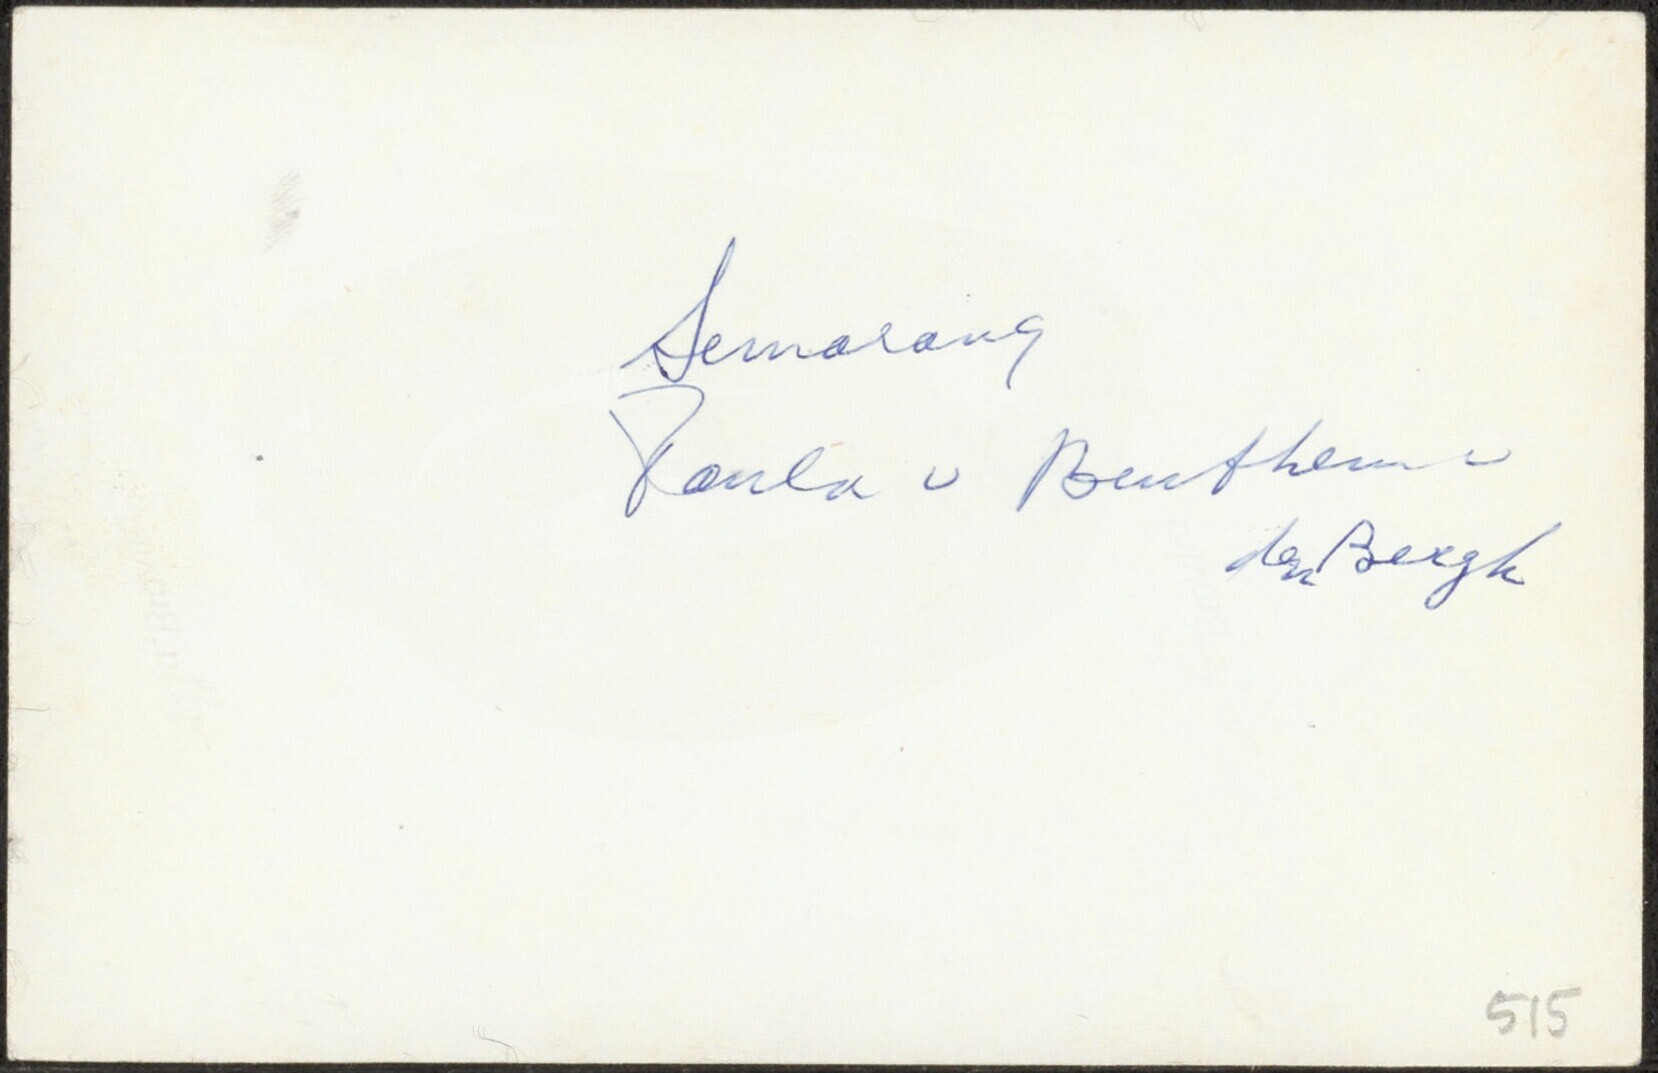 Semarang
Paula v Benthem v
den Bergh
515